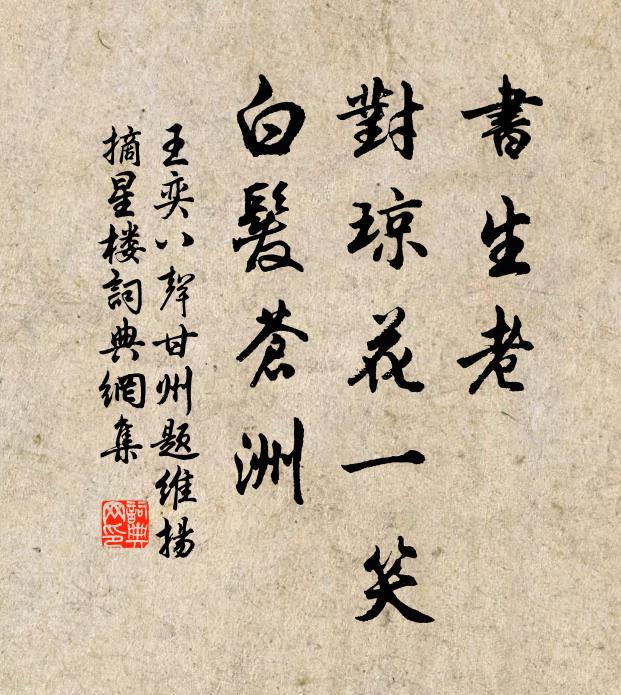 書生老
對琼花一笑
白髮蒼洲
王奕八聲甘州題維揚
摘星楼詞典網集
詞典网印